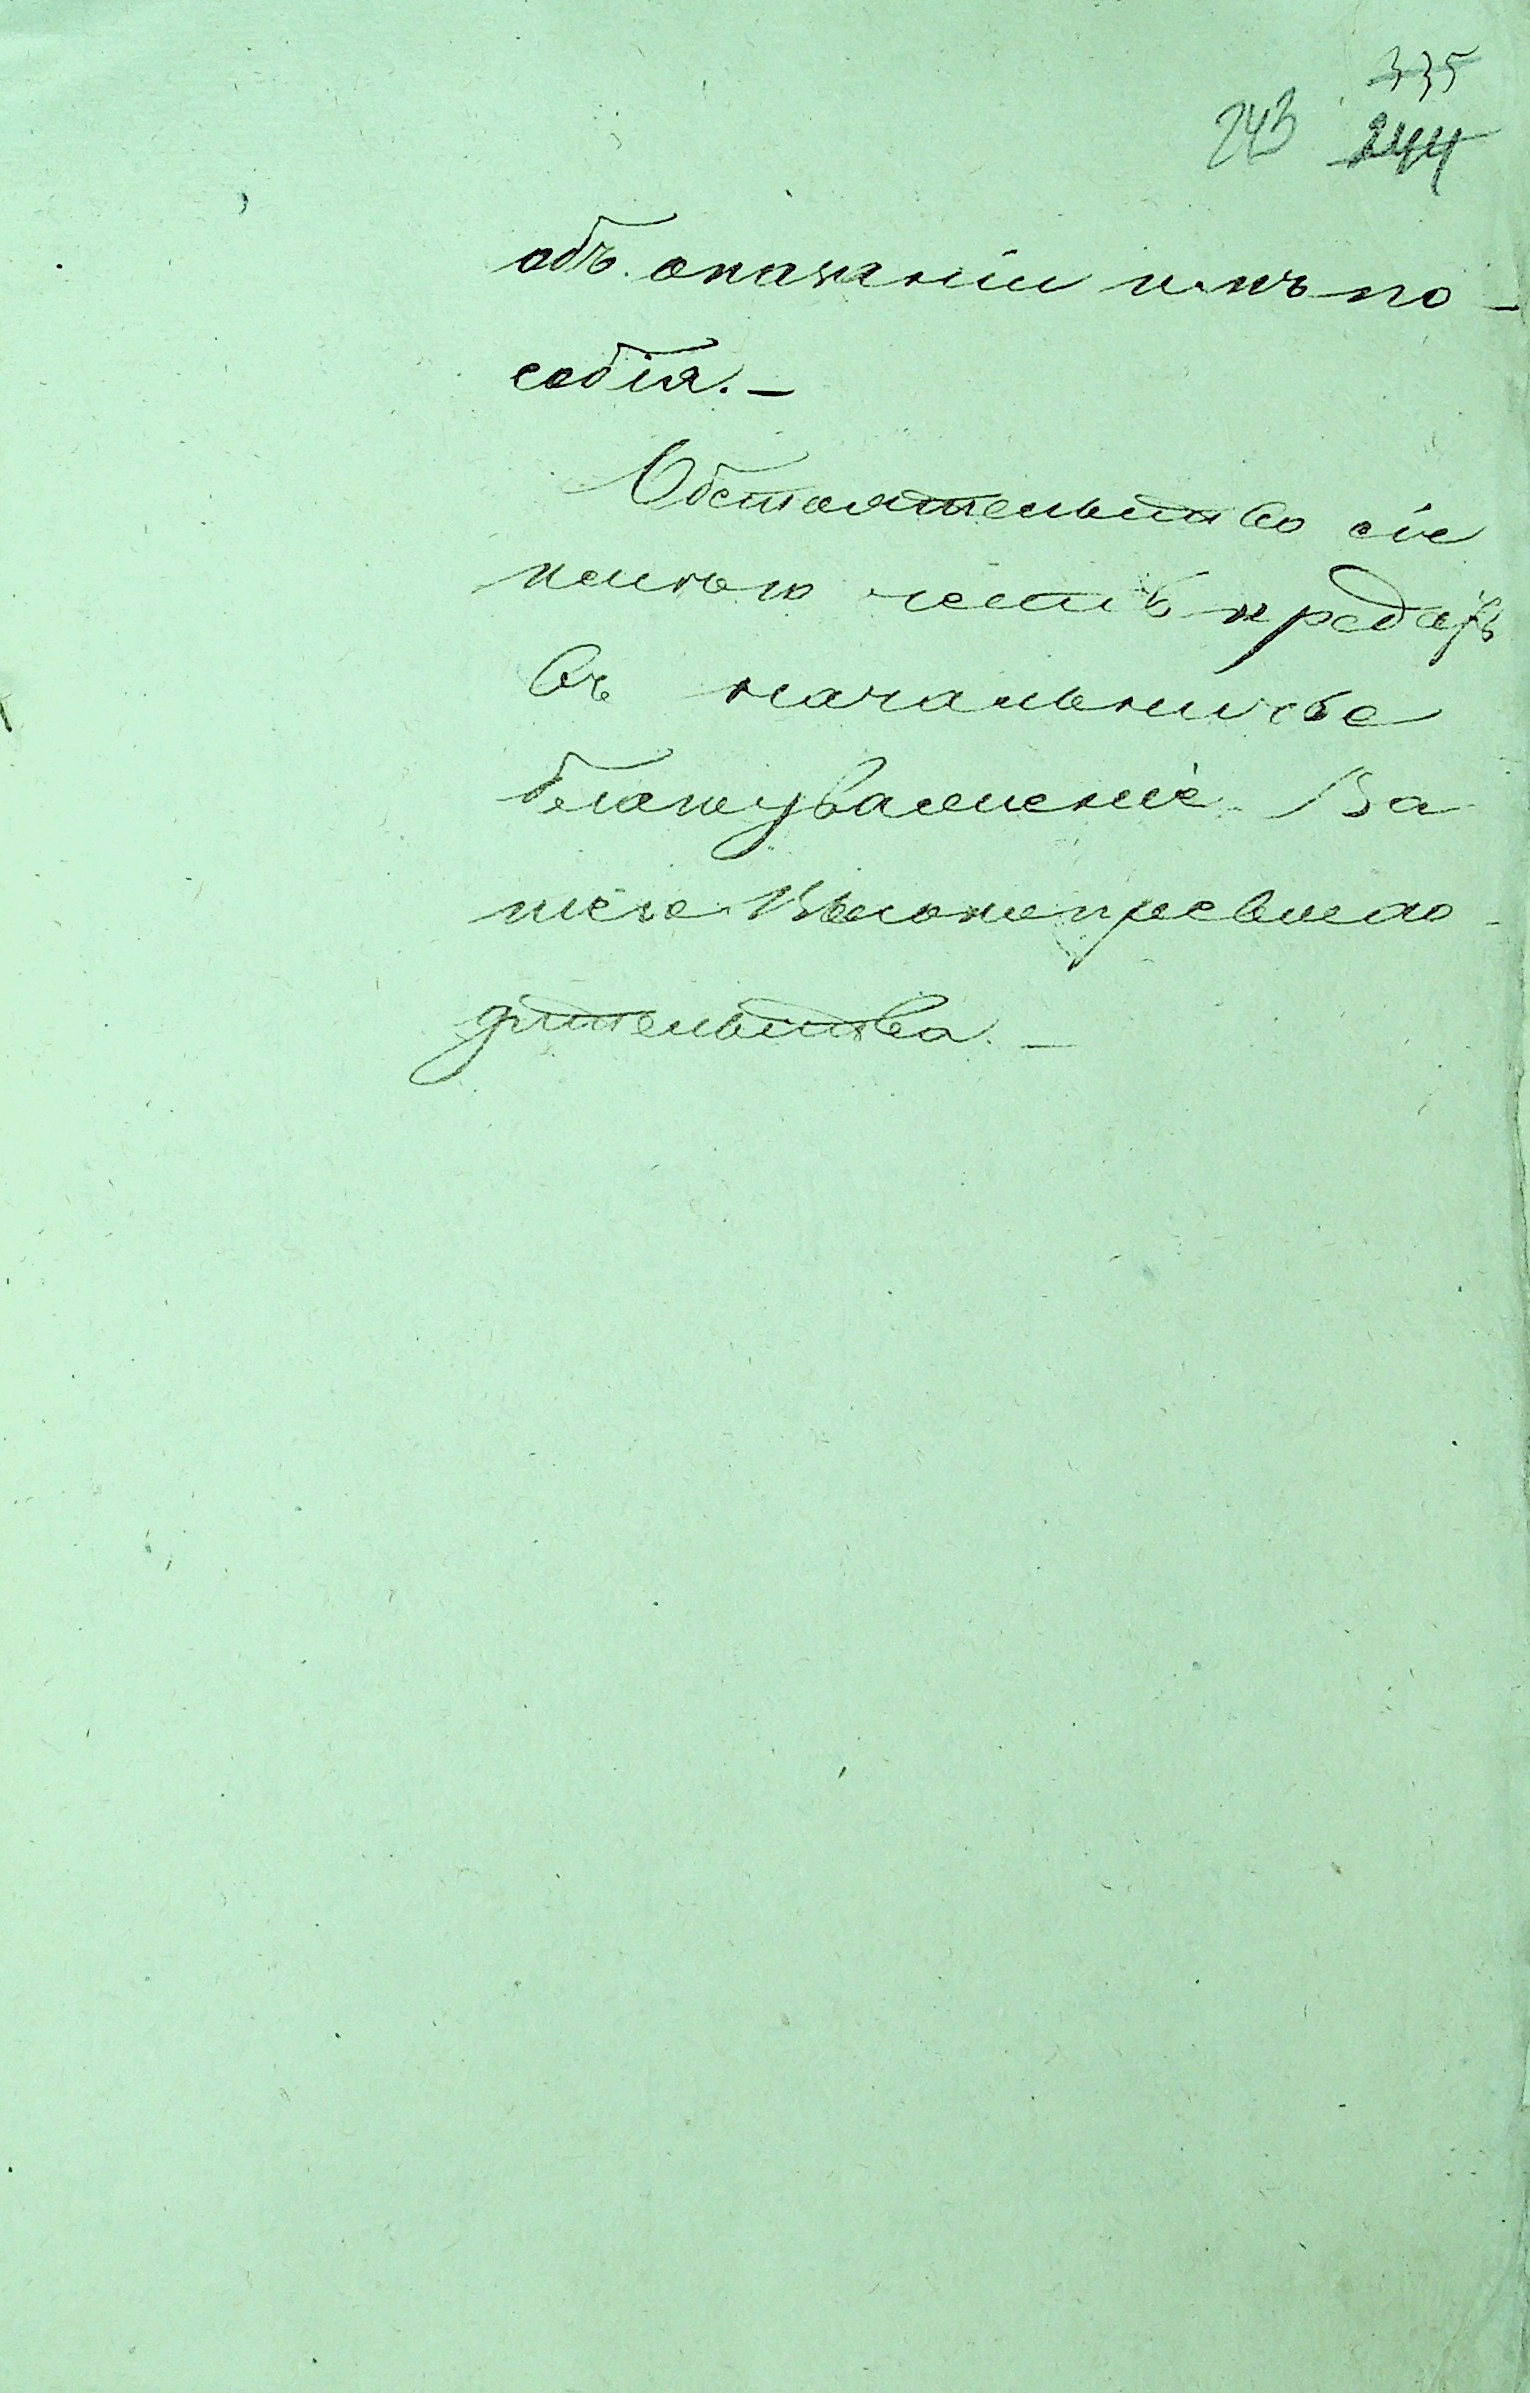 335
243 244
объ оказаніи имъ по-
собія.–
Обстоятельство сіе
имѣю честь предать
въ начальничье
благоуваженіе Ва
шего Высокопревосхо-
дительства.–